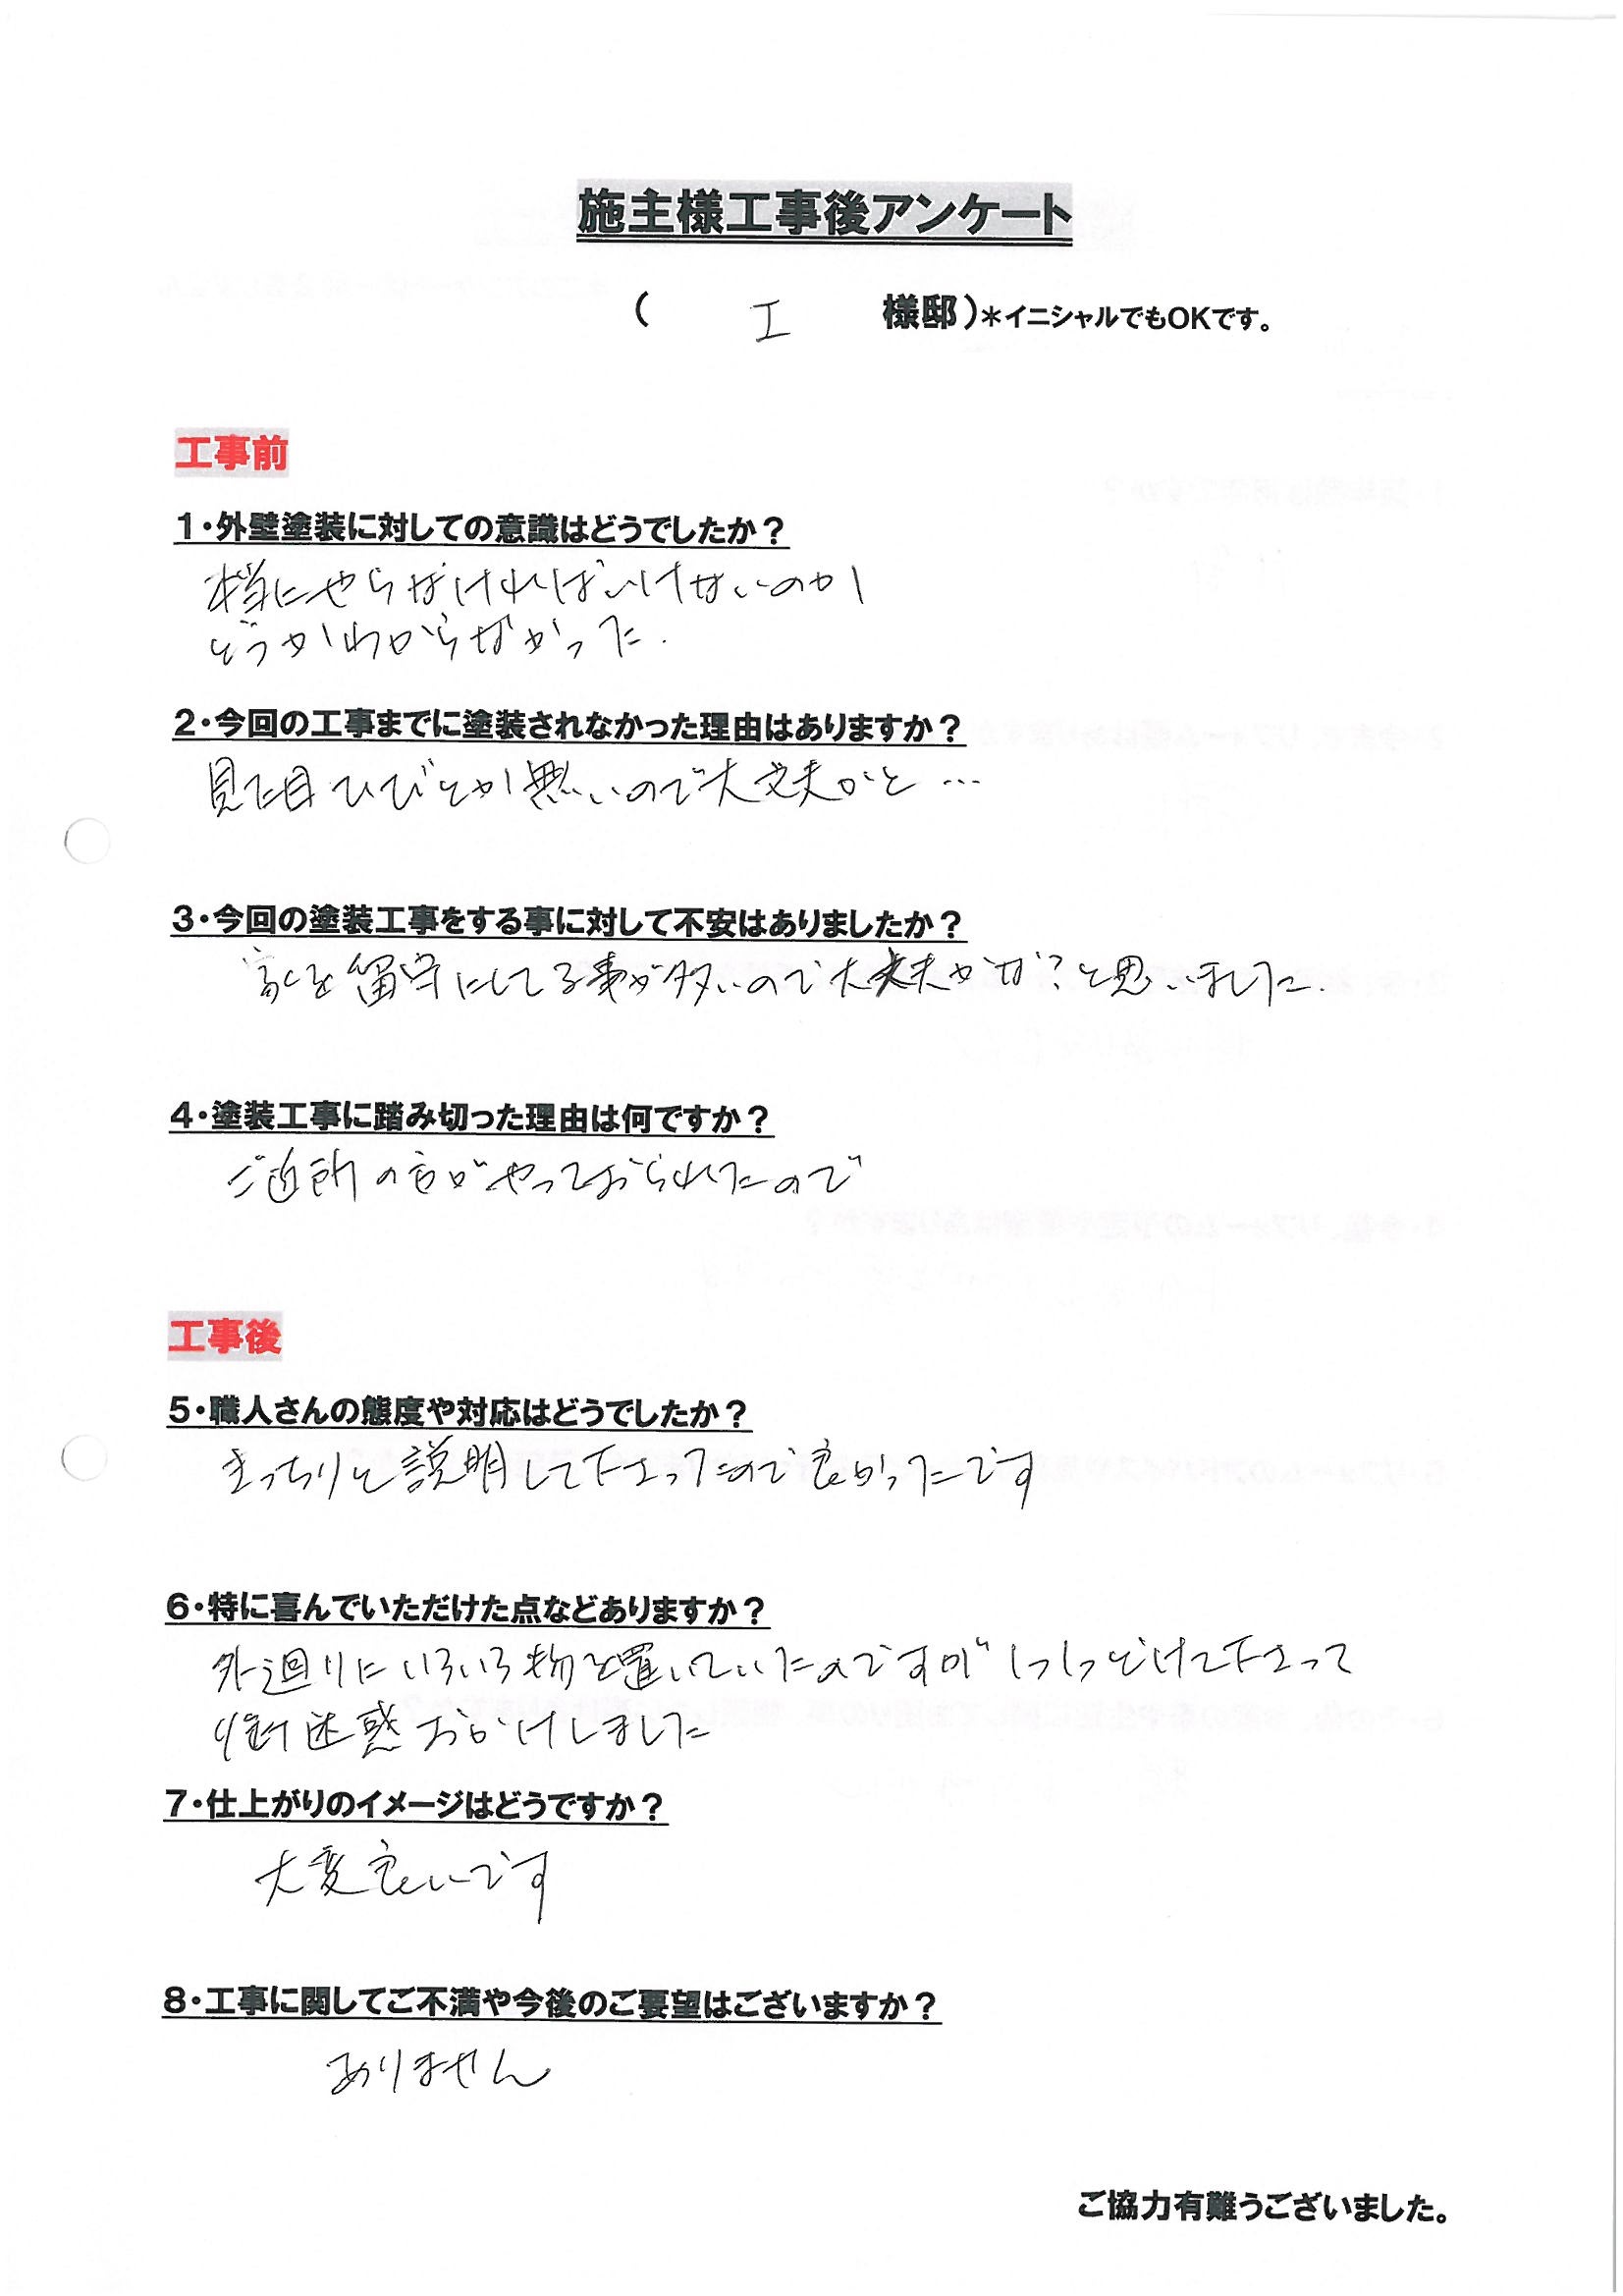 施主様工事後アンケート
( I 様邸)*イニシャルでもOKです。
工事前
1・外壁塗装に対しての意識はどうでしたか？
本当にやらなければいけないのか
どうかわからなかった.
2・今回の工事までに塗装されなかった理由はありますか？
見た目ひびとか無いので大丈夫かと…
3・今回の塗装工事をする事に対して不安はありましたか？
家を留守にしてる事が多いので大丈夫かな？と思いました.
4・塗装工事に踏み切った理由は何ですか？
ご近所の方がやっておられたので
工事後
5・職人さんの態度や対応はどうでしたか？
きっちりと説明して下さったので良かったです
6・特に喜んでいただけた点などありますか？
外廻りにいろいろ物を置いていたのですが いつしつどけて下さって
御迷惑おかけしました
7・仕上がりのイメージはどうですか？
大変良いです
8・工事に関してご不満や今後のご要望はございますか？
ありません
ご協力有難うございました。